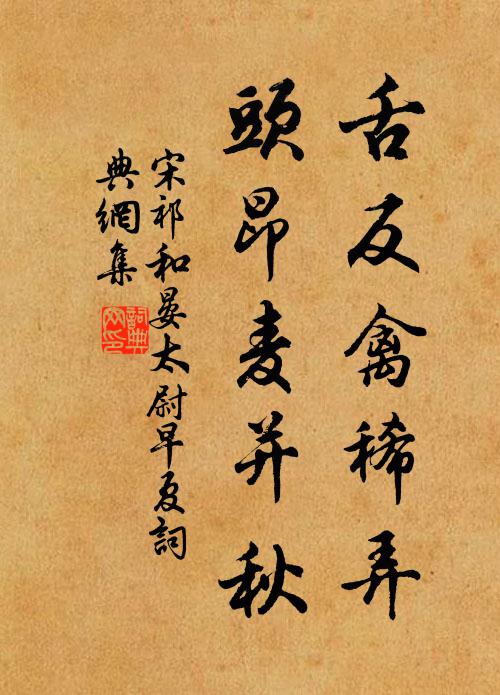 舌反禽稀弄
頭昂麦并秋
宋祁和晏太尉早夏詞
典網集
詞典网印